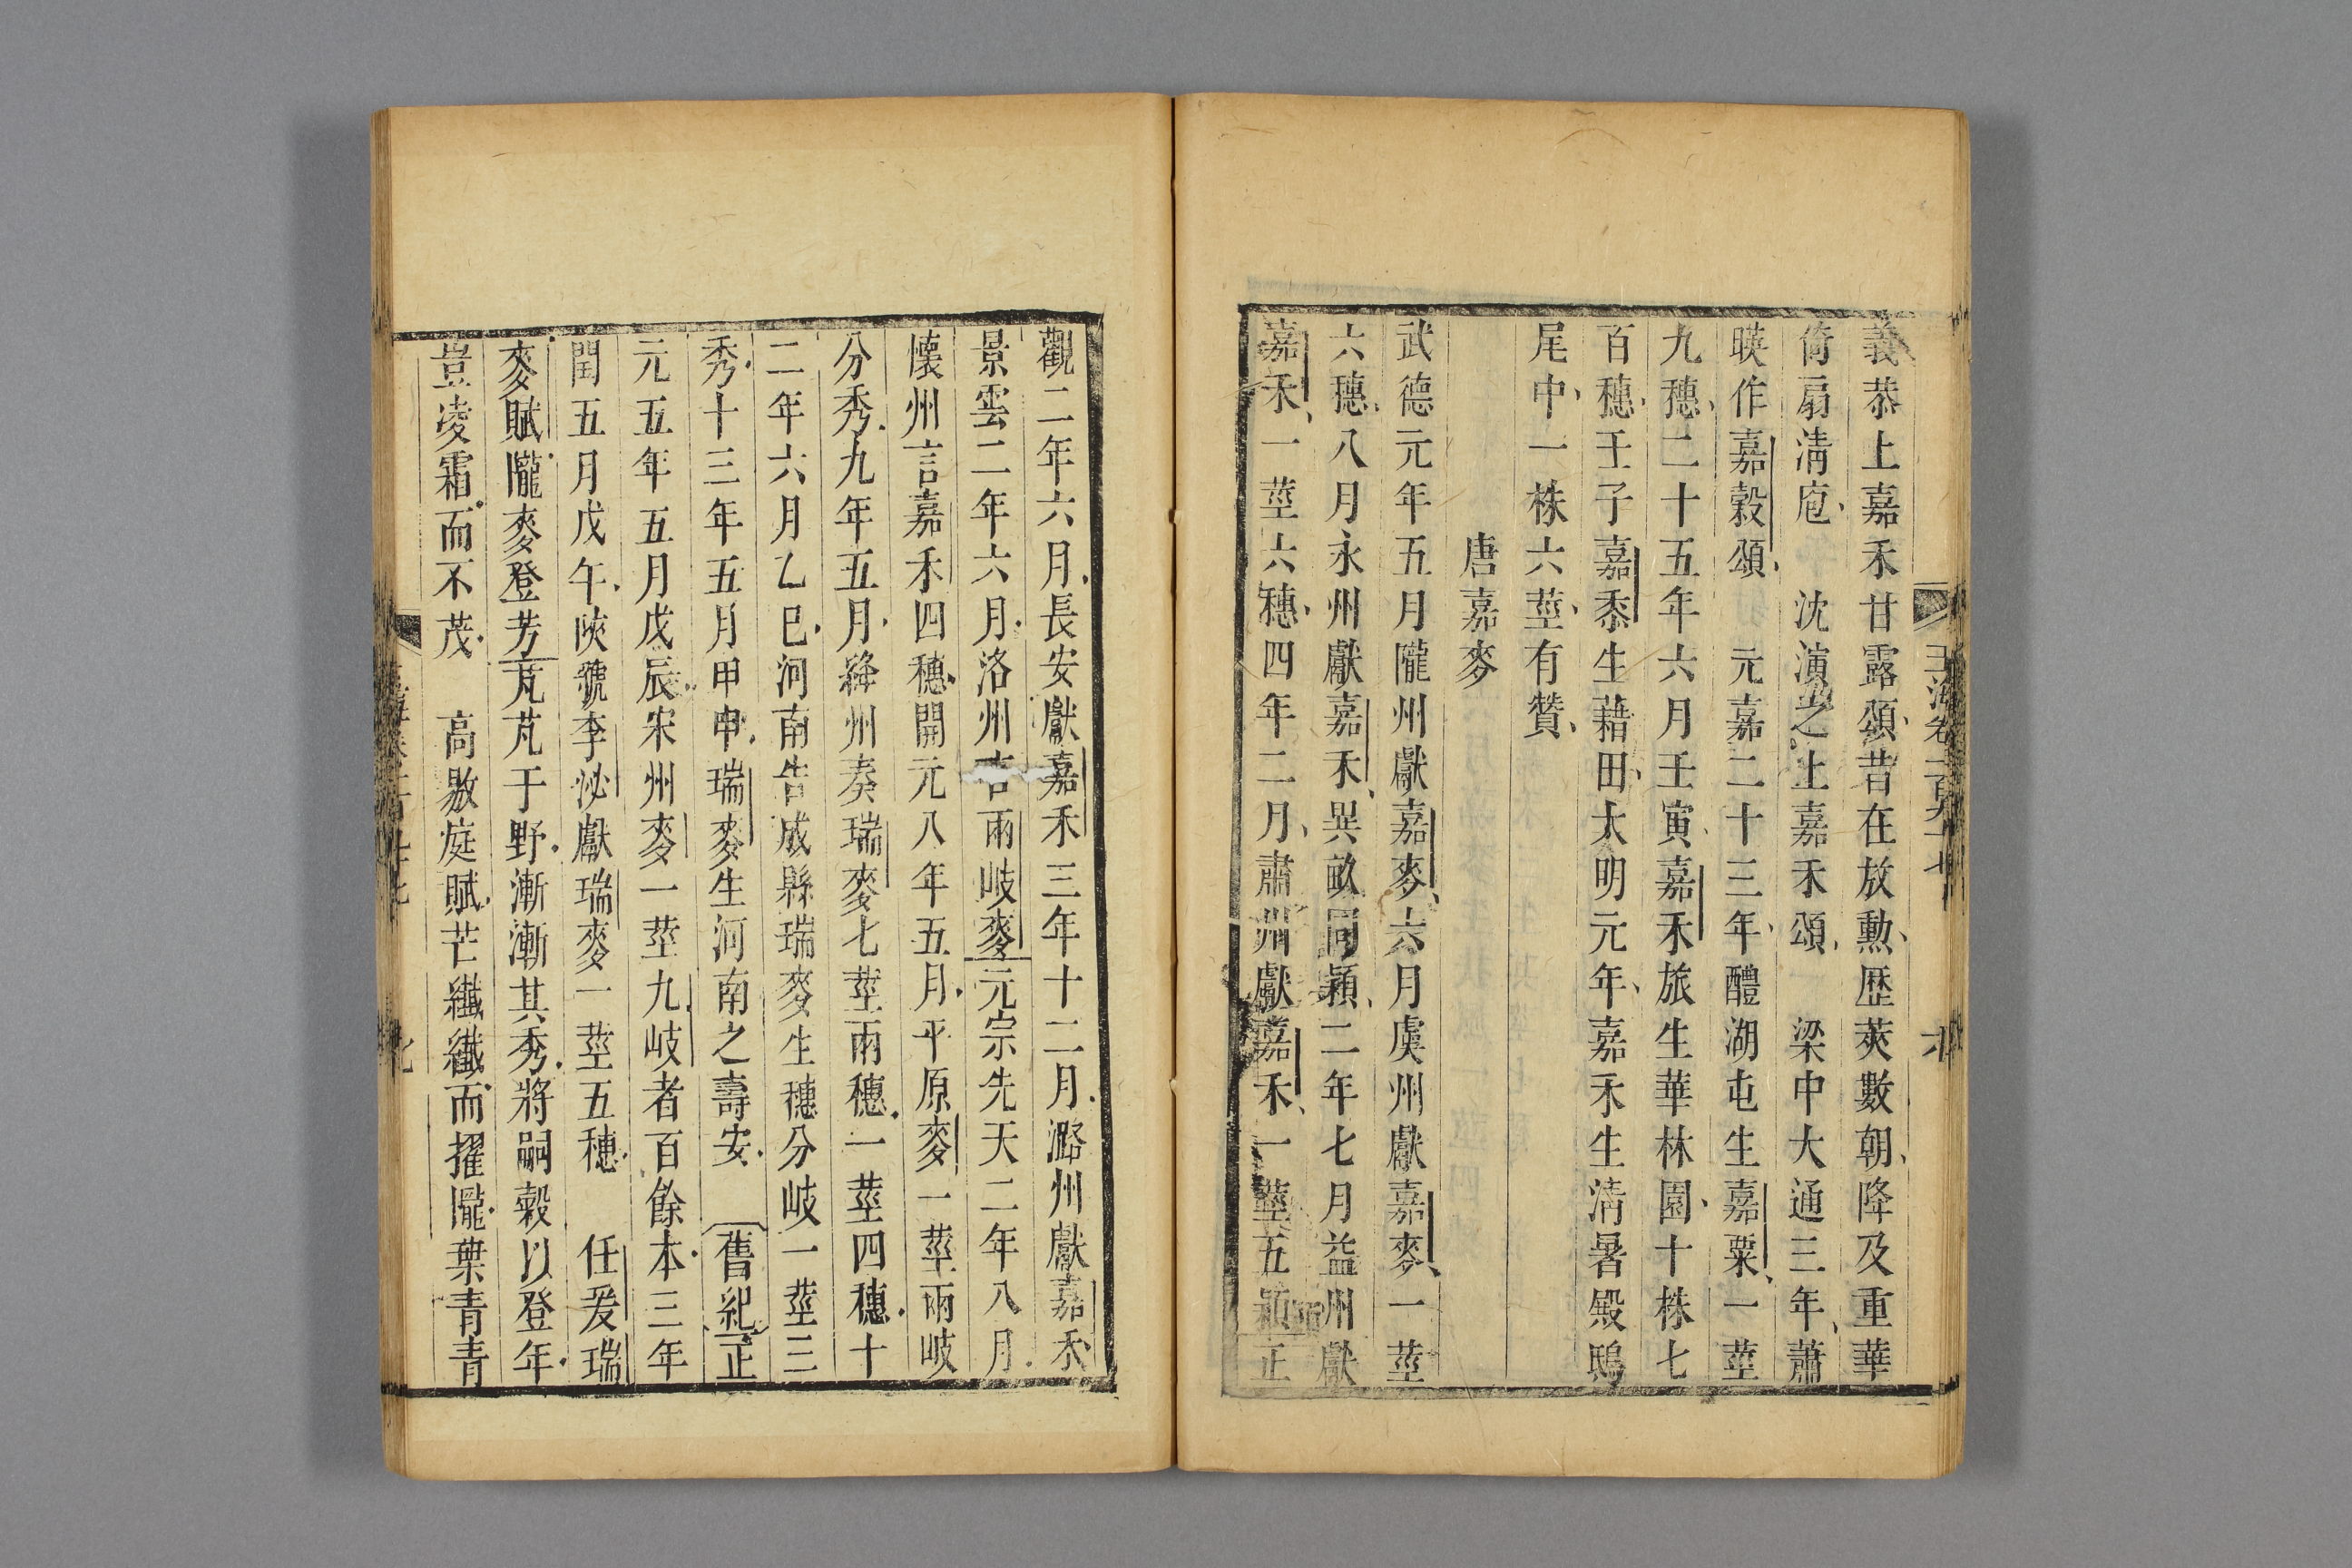 義恭上嘉禾甘露頌昔在放勲歴莢數朝降及重華
倚扇清庖 沈演之上嘉禾頌 梁中大通三年蕭
暎作嘉穀頌 元嘉二十三年醴湖屯生嘉粟一莖
九穗二十五年六月壬寅嘉禾旅生華林園十株七
百穗壬子嘉黍生藉田大明元年嘉禾生清暑殿鴟
尾中一株六莖有贊
唐嘉麥
武德元年五月隴州獻嘉麥六月虞州獻嘉麥一莖
六穗八月永州獻嘉禾異畝同穎二年七月益州獻
嘉禾一莖六穗四年二月肅州獻嘉禾一莖五穎正
觀二年六月長安獻嘉禾三年十二月潞州獻嘉禾
景雲二年六月洛州言兩岐麥元宗先天二年八月
懷州言嘉禾四穗開元八年五月平原麥一莖兩岐
分秀九年五月絳州奏瑞麥七莖兩穗一莖四穗十
二年六月乙巳河南告成縣瑞麥生穗分岐一莖三
秀十三年五月甲申瑞麥生河南之壽安 舊紀正
元五年五月戊辰宋州麥一莖九岐者百餘本三年
閏五月戊午陝虢李泌獻瑞麥一莖五穗 任爰瑞
麥賦隴麥登芳芃芃于野漸漸其秀將嗣穀以登年
豈凌霜而不茂 高敫庭賦芒纖纖而擢隴葉青青
玉海卷一百九十七